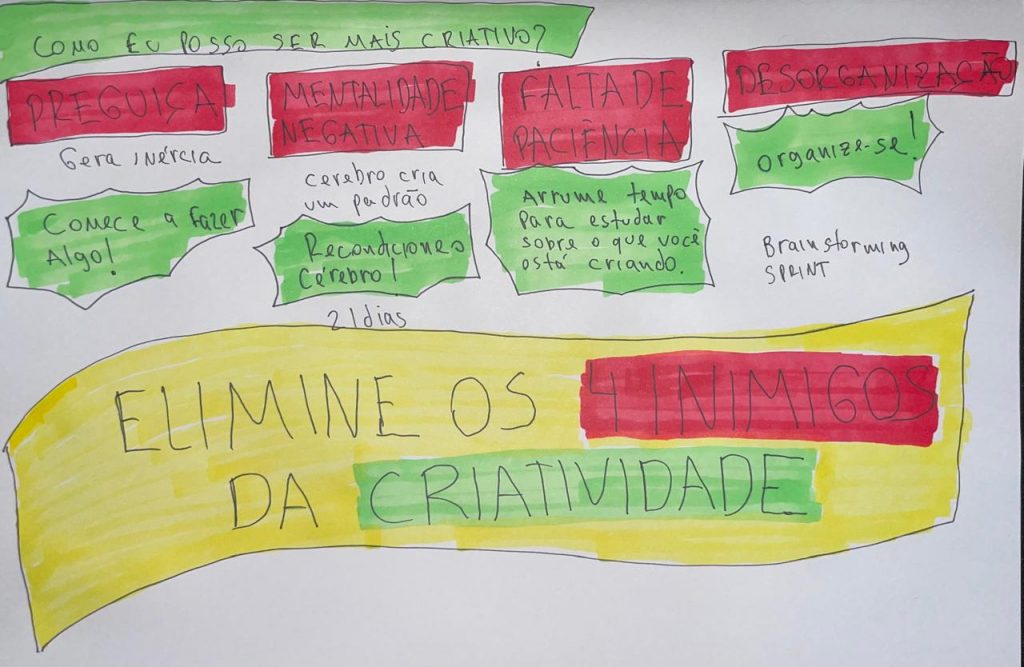 COMO EU POSSO SER MAIS CRIATIVO?
PREGUIÇA
Gera inércia
Comece a fazer
Algo!
MENTALIDADE
NEGATIVA
cerebro cria
um padrão
Recondicione o
Cérebro!
21 dias
FALTA DE
PACIÊNCIA
Arrume tempo
para estudar
sobre o que você
está criando.
DESORGANIZAÇÃO
organize-se!
Brainstorming
SPRINT
ELIMINE OS 4 INIMIGOS
DA CRIATIVIDADE